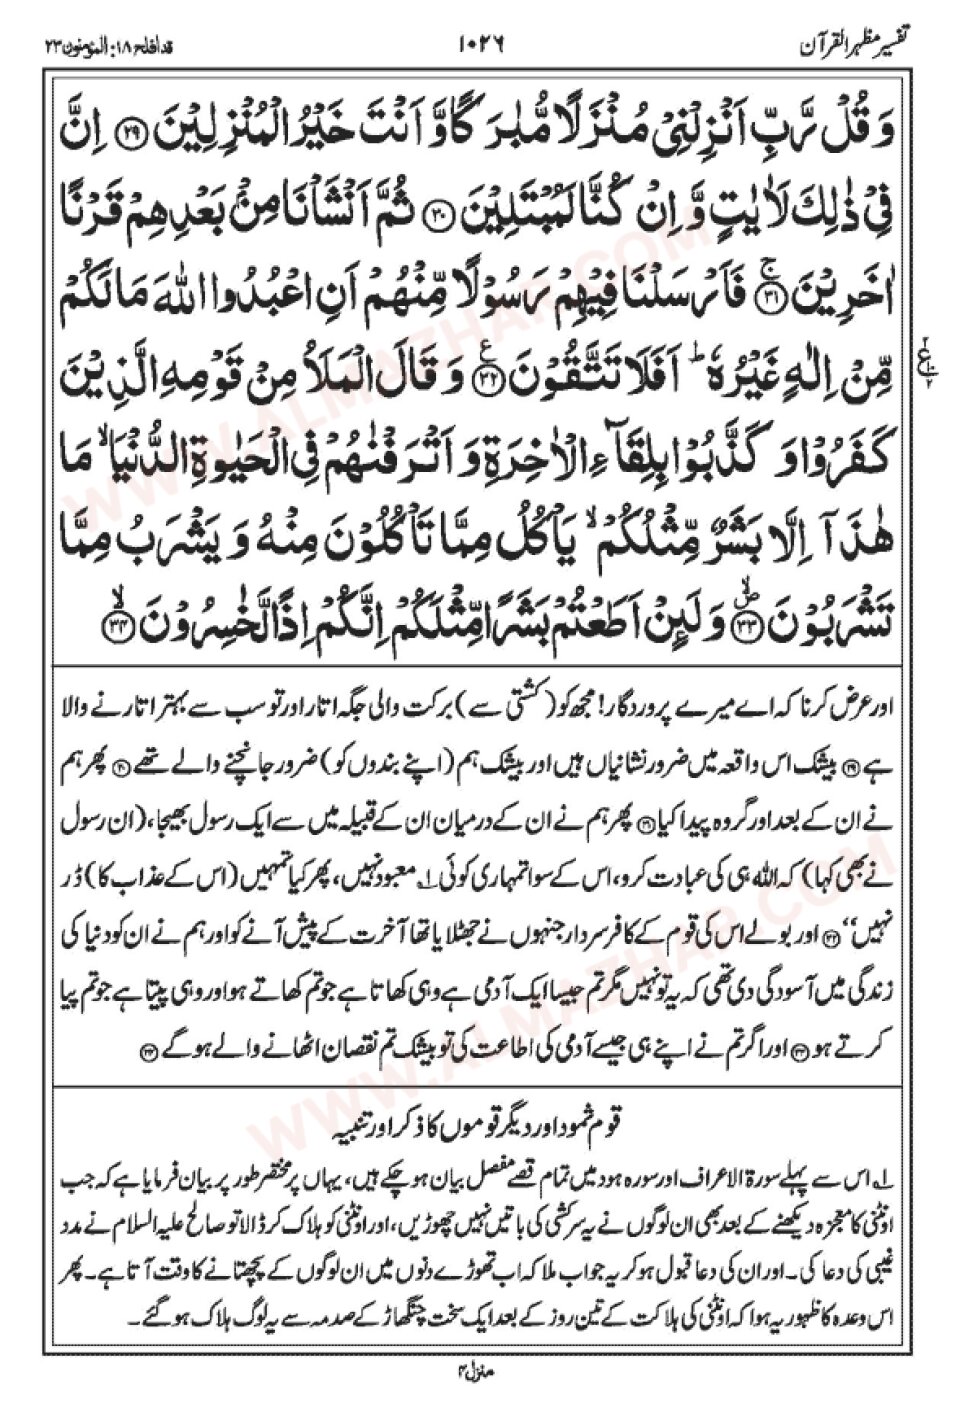 تفسیر مظہر القرآن ۱۰۲۶ قد افلح ۱۸: المؤمنون ۲۳
وَ قُلْ رَّبِّ اَنْزِلْنِیْ مُنْزَلًا مُّبٰرَكًا وَّ اَنْتَ خَیْرُ الْمُنْزِلِیْنَ ﴿۲۹﴾ اِنَّ
فِیْ ذٰلِكَ لَاٰیٰتٍ وَّ اِنْ كُنَّا لَمُبْتَلِیْنَ ﴿۳۰﴾ ثُمَّ اَنْشَاْنَا مِنْۢ بَعْدِهِمْ قَرْنًا
اٰخَرِیْنَ ﴿۳۱﴾ۚ فَاَرْسَلْنَا فِیْهِمْ رَسُوْلًا مِّنْهُمْ اَنِ اعْبُدُوا اللّٰهَ مَا لَكُمْ
مِّنْ اِلٰهٍ غَیْرُهٗ ؕ اَفَلَا تَتَّقُوْنَ ﴿۳۲﴾ ع وَ قَالَ الْمَلَاُ مِنْ قَوْمِهِ الَّذِیْنَ
كَفَرُوْا وَ كَذَّبُوْا بِلِقَآءِ الْاٰخِرَةِ وَ اَتْرَفْنٰهُمْ فِی الْحَیٰوةِ الدُّنْیَا ۙ مَا
هٰذَاۤ اِلَّا بَشَرٌ مِّثْلُكُمْ ۙ یَاْكُلُ مِمَّا تَاْكُلُوْنَ مِنْهُ وَ یَشْرَبُ مِمَّا
تَشْرَبُوْنَ ﴿۳۳﴾ۙ وَ لَىِٕنْ اَطَعْتُمْ بَشَرًا مِّثْلَكُمْ اِنَّكُمْ اِذًا لَّخٰسِرُوْنَ ﴿۳۴﴾ۙ
اور عرض کرنا کہ اے میرے پروردگار! مجھ کو (کشتی سے) برکت والی جگہ اتار اور تو سب سے بہتر اتارنے والا
ہے ﴿۲۹﴾ بیشک اس واقعہ میں ضرور نشانیاں ہیں اور بیشک ہم (اپنے بندوں کو) ضرور جانچنے والے تھے ﴿۳۰﴾ پھر ہم
نے ان کے بعد اور گروہ پیدا کیا ﴿۳۱﴾ پھر ہم نے ان کے درمیان ان کے قبیلہ میں سے ایک رسول بھیجا، (ان رسول
نے بھی کہا) کہ اللہ ہی کی عبادت کرو، اس کے سوا تمہاری کوئی ۱؎ معبود نہیں، پھر کیا تمہیں (اس کے عذاب کا) ڈر
نہیں‘‘ ﴿۳۲﴾ اور بولے اس کی قوم کے کافر سردار جنہوں نے جھٹلایا تھا آخرت کے پیش آنے کو اور ہم نے ان کو دنیا کی
زندگی میں آسودگی دی تھی کہ یہ تو نہیں مگر تم جیسا ایک آدمی ہے وہی کھاتا ہے جو تم کھاتے ہو اور وہی پیتا ہے جو تم پیا
کرتے ہو ﴿۳۳﴾ اور اگر تم نے اپنے ہی جیسے آدمی کی اطاعت کی تو بیشک تم نقصان اٹھانے والے ہو گے ﴿۳۴﴾
قوم ثمود اور دیگر قوموں کا ذکر اور تنبیہ
۱؎ اس سے پہلے سورۃ الاعراف اور سورہ ہود میں تمام قصے مفصل بیان ہو چکے ہیں، یہاں پر مختصر طور پر بیان فرمایا ہے کہ جب
اونٹنی کا معجزہ دیکھنے کے بعد بھی ان لوگوں نے یہ سرکشی کی باتیں نہیں چھوڑیں، اور اونٹنی کو ہلاک کر ڈالا تو صالح علیہ السلام نے مدد
غیبی کی دعا کی۔ اور ان کی دعا قبول ہو کر یہ جواب ملا کہ اب تھوڑے دنوں میں ان لوگوں کے پچھتانے کا وقت آتا ہے۔ پھر
اس وعدہ کا ظہور یہ ہوا کہ اونٹنی کی ہلاکت کے تین روز کے بعد ایک سخت چنگھاڑ کے صدمہ سے یہ لوگ ہلاک ہو گئے۔
منزل ۴
WWW.ALMAZHAR.COM
WWW.ALMAZHAR.COM